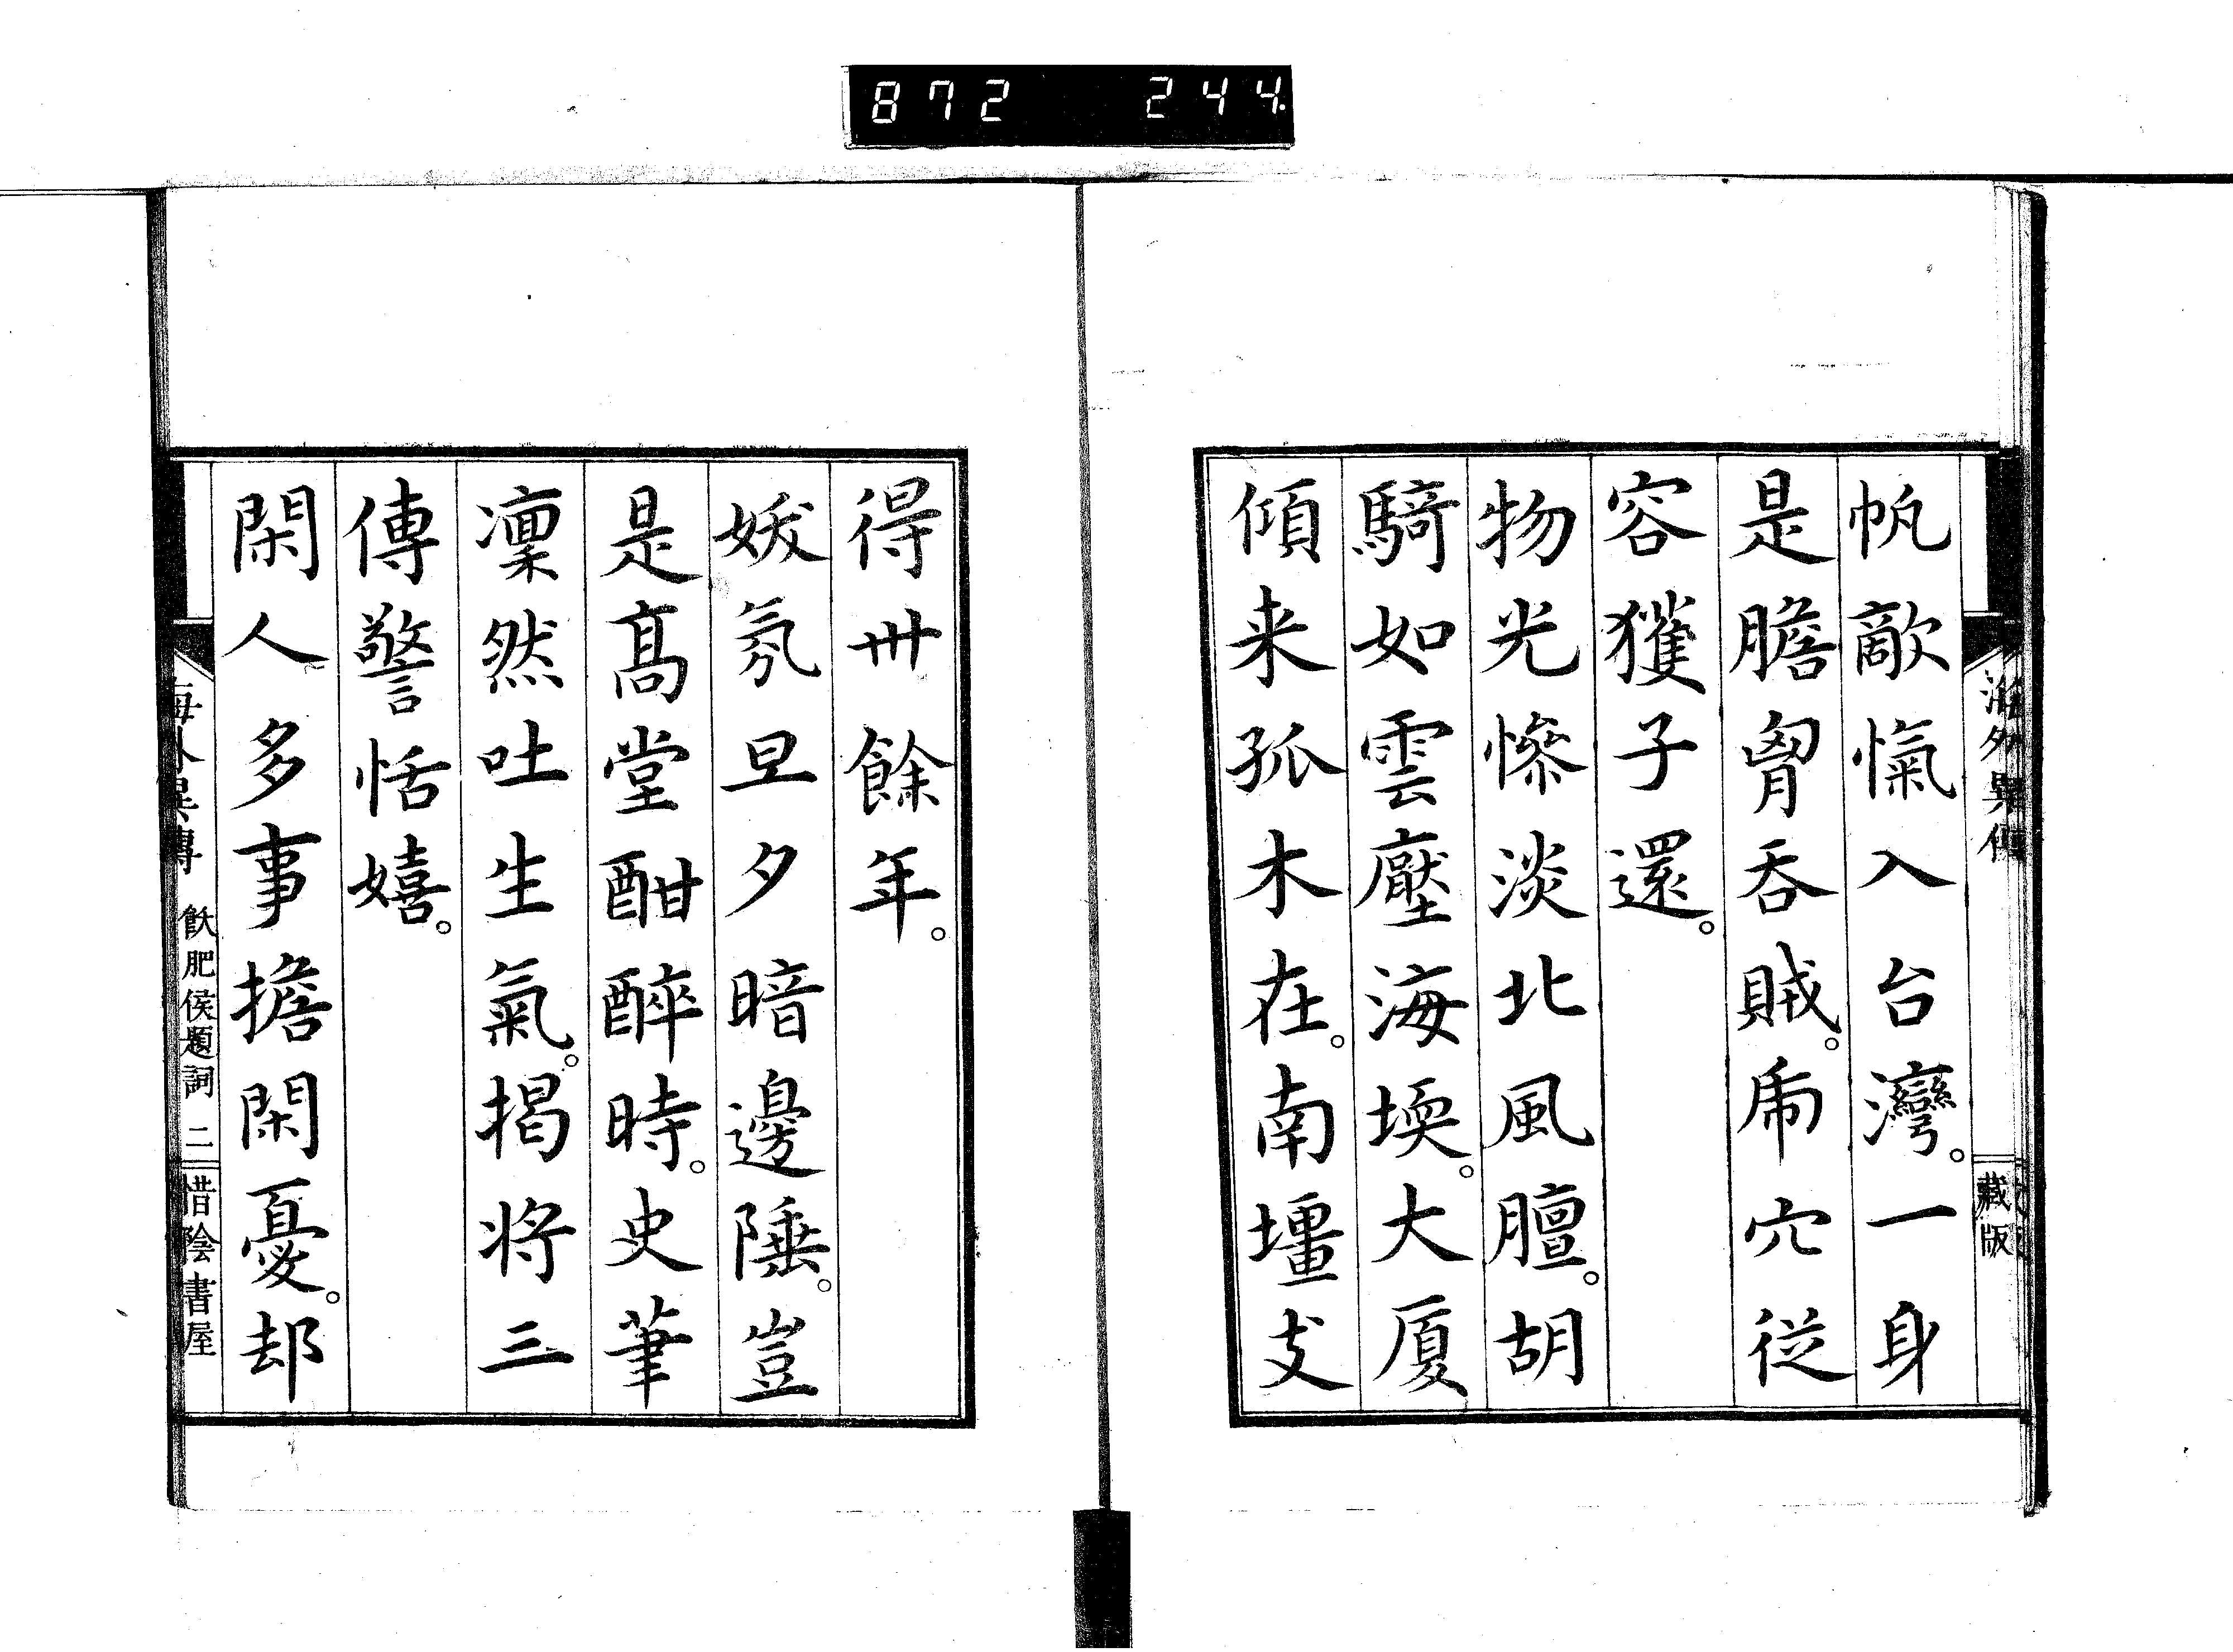 872 244.
海外異傳
藏版
帆敵愾入台灣。一身
是膽胷呑賊。乕穴從
容獲子還。
物光慘淡北風膻。胡
騎如雲壓海堧。大厦
傾来孤木在。南壃支
得丗餘年。
妖氛旦夕暗邊陲。豈
是髙堂酣醉時。史筆
凛然吐生氣。揭将三
傳警恬嬉。
閑人多事擔閑憂。却
海外異傳 飫肥侯題詞 二 惜陰書屋